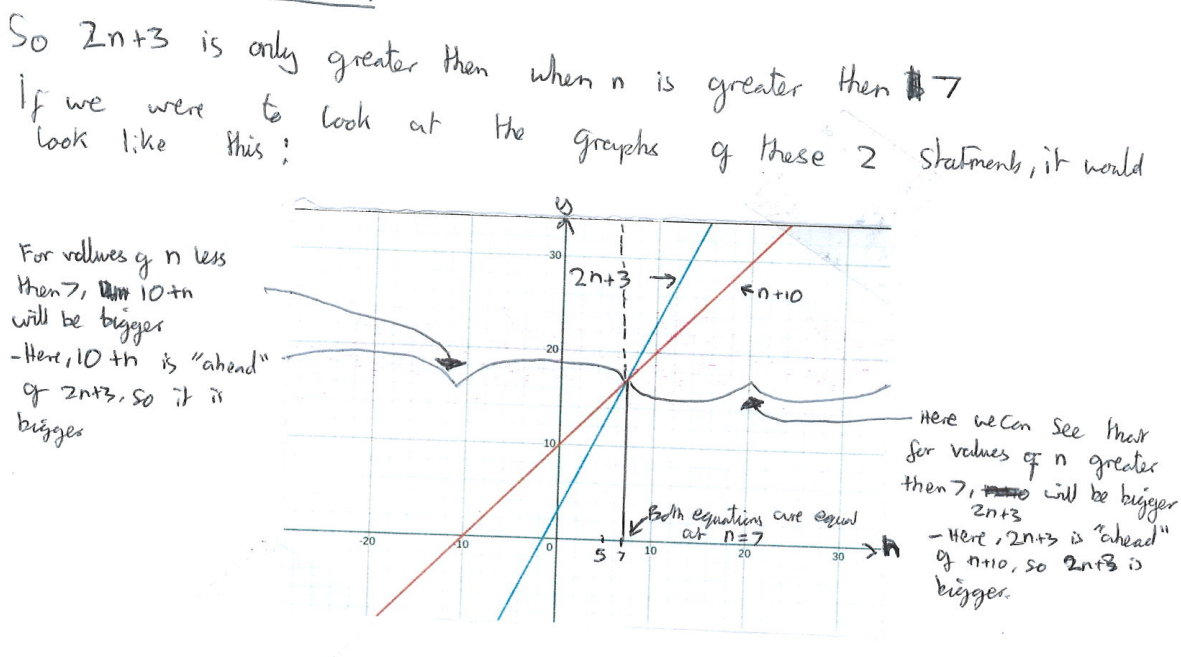 So 2n+3 is only greater then when n is greater then 7
If we were to look at the graphs of these 2 statments, it would
look like this:
y
30
2n+3 →
← n+10
20
10
-20
-10
0
5
7
10
20
30
n
For vallues of n less
then 7, 10+n
will be bigger
- Here, 10+n is "ahead"
of 2n+3, so it is
bigger
Both equations are equal
at n=7
Here we can see that
for values of n greater
then 7, will be bigger
2n+3
- Here, 2n+3 is "ahead"
of n+10, so 2n+3 is
bigger.